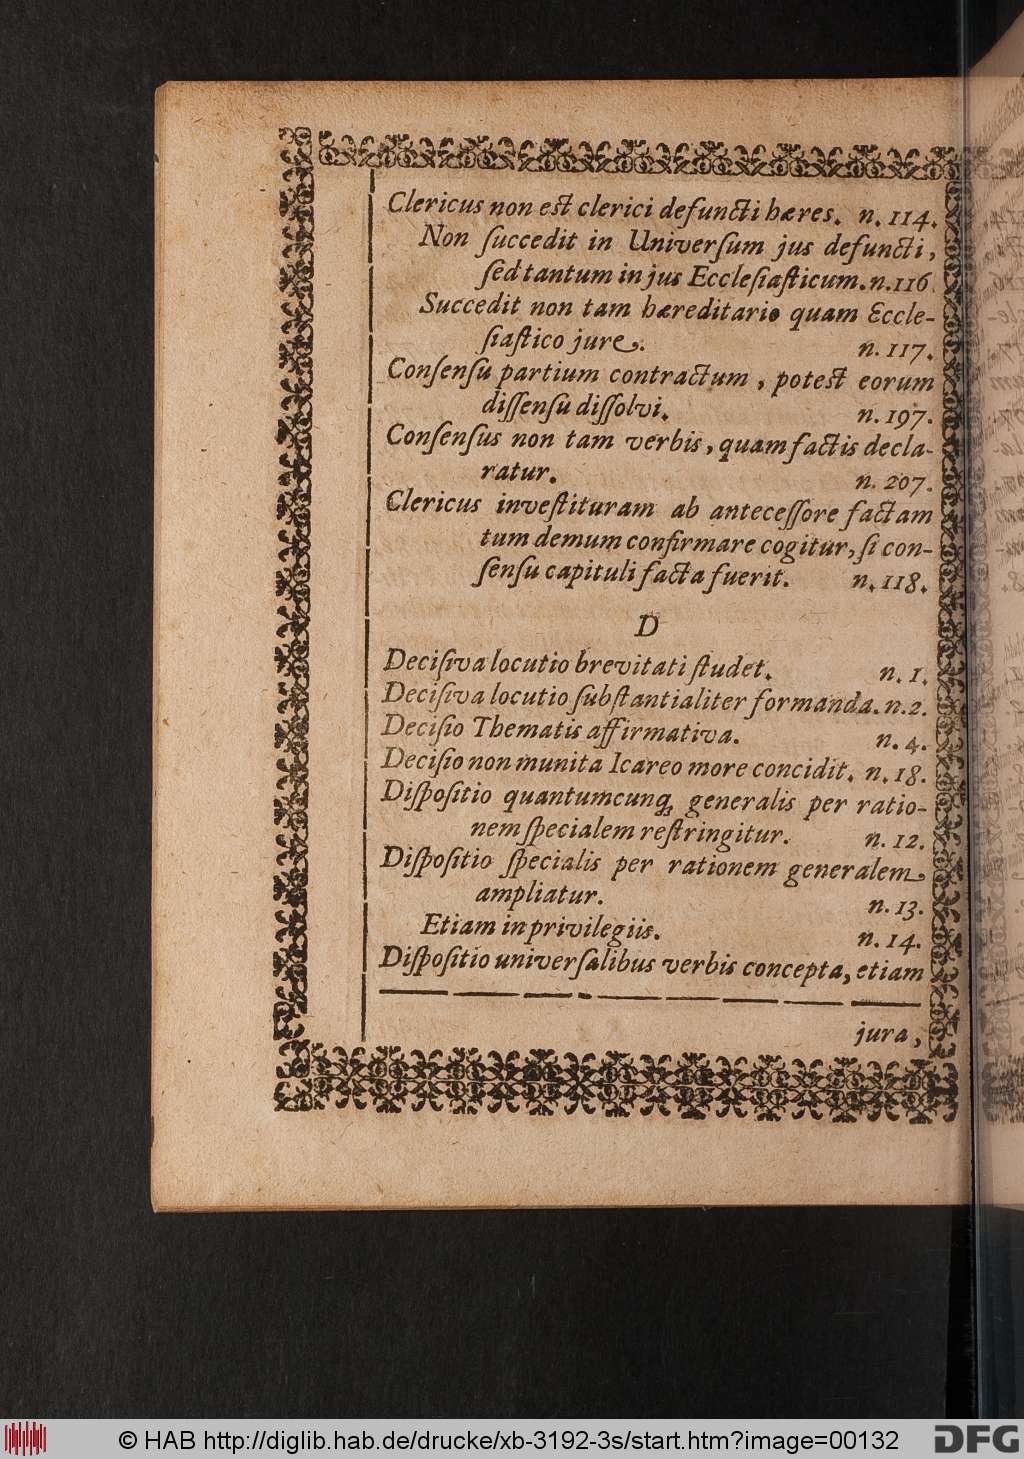 Clericus non est clerici defuncti hæres. n. 114.
Non ſuccedit in Univerſum jus defuncti,
ſed tantum in jus Eccleſiaſticum. n. 116.
Succedit non tam hæreditario quam Eccle-
ſiaſtico jure. n. 117.
Conſenſu partium contractum, poteſt eorum
diſſenſu diſſolvi. n. 197.
Conſenſus non tam verbis, quam factis decla-
ratur. n. 207.
Clericus inveſtituram ab anteceſſore factam
tum demum confirmare cogitur, ſi con-
ſenſu capituli facta fuerit. n. 118.
D
Deciſiva locutio brevitati ſtudet. n. 1.
Deciſiva locutio ſubſtantialiter formanda. n. 2.
Deciſio Thematis affirmativa. n. 4.
Deciſio non munita Icareo more concidit. n. 18.
Diſpoſitio quantumcunq; generalis per ratio-
nem ſpecialem reſtringitur. n. 12.
Diſpoſitio ſpecialis per rationem generalem
ampliatur. n. 13.
Etiam in privilegiis. n. 14.
Diſpoſitio univerſalibus verbis concepta, etiam
jura,
© HAB http://diglib.hab.de/drucke/xb-3192-3s/start.htm?image=00132
DFG